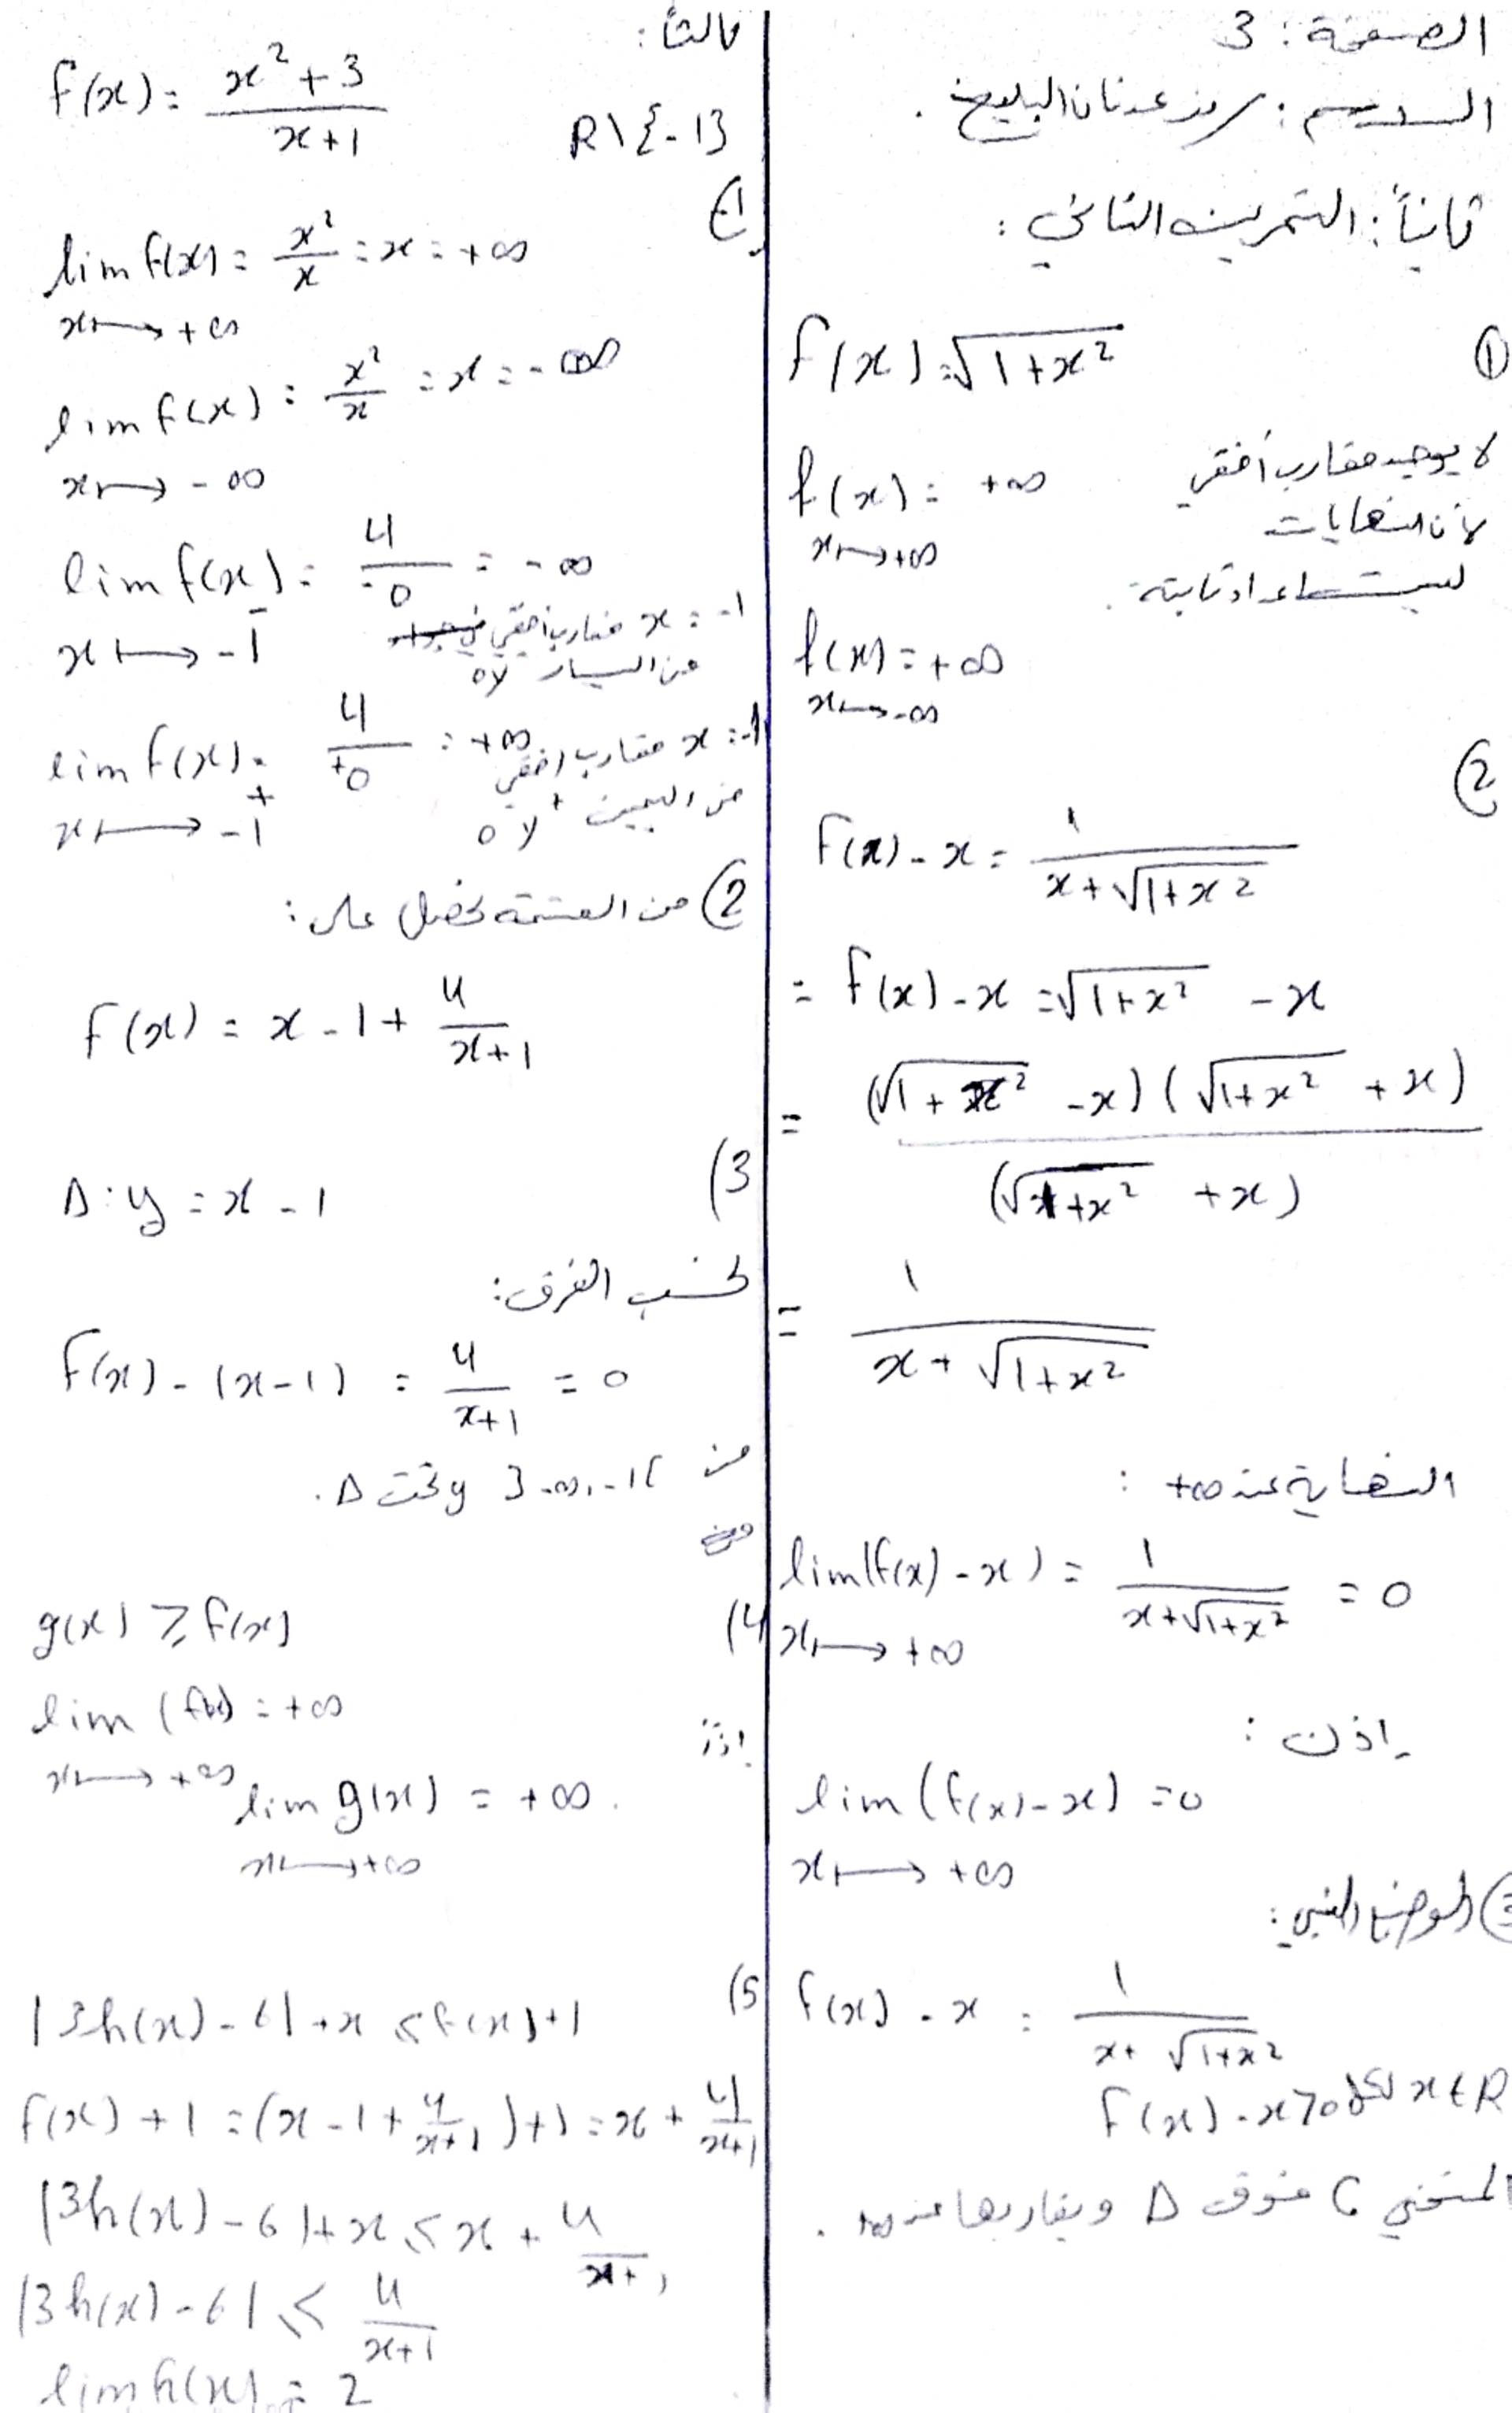 الصفحة: 3
الاسم:
ثانياً: التمرين الثاني:
①
f(x) = √(1+x²)
لا يوجد مقارب أفقي
لأن النهايات
ليست اعداد ثابتة.
f(x) = +∞
x↦+∞
f(x) = +∞
x↦-∞
②
f(x) - x = 1/(x+√(1+x²))
= f(x) - x = √(1+x²) - x
= (√(1+x²) - x)(√(1+x²) + x)/(√(1+x²) + x)
= 1/(x+√(1+x²))
النهاية عند +∞ :
lim(f(x) - x) = 1/(x+√(1+x²)) = 0
x↦+∞
إذن :
lim (f(x) - x) = 0
x↦+∞
③ الوضع النسبي:
f(x) - x = 1/(x+√(1+x²))
f(x) - x > 0 لكل x ∈ R
المنحني C فوق Δ ويقاربها عند +∞.
ثالثاً:
f(x) = (x²+3)/(x+1)
R\{-1}
(1
lim f(x) = x²/x = x = +∞
x↦+∞
lim f(x) = x²/x = x = -∞
x↦-∞
lim f(x) = 4/-0 = -∞
x↦-1⁻
x = -1 مقارب أفقي
من اليسار
lim f(x) = 4/+0 = +∞
x↦-1⁺
x = -1 مقارب افقي
من اليمين
② من القسمة نحصل على:
f(x) = x - 1 + 4/(x+1)
(3
Δ: y = x - 1
نحسب الفرق:
f(x) - (x-1) = 4/(x+1) = 0
من ]-∞, -1[ y تحت Δ.
(4
g(x) ≥ f(x)
lim (f(x) = +∞
x↦+∞
إذن
lim g(x) = +∞.
x↦+∞
(5
|3h(x) - 6| + x ≤ f(x) + 1
f(x) + 1 = (x - 1 + 4/(x+1)) + 1 = x + 4/(x+1)
|3h(x) - 6| + x ≤ x + 4/(x+1)
|3h(x) - 6| ≤ 4/(x+1)
lim h(x) = 2